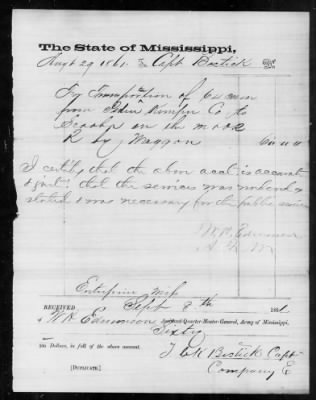 The State of Mississippi,
Augt 29 1861 To Capt Bostick Dr
To Transportation of 60 men
from Kemper Co to
Scooba on the M & O R
R by Waggon
I certify that the above acct is accurate
& just: that the services was rendered as
stated & was necessary for the public service
A Q M
Enterprise Miss
RECEIVED Sept 8th 1861
of W H Edmonson Assistant-Quarter-Master-General, Army of Mississippi,
Sixty
Dollars, in full of the above account.
Bostick Capt
[DUPLICATE.] Company E